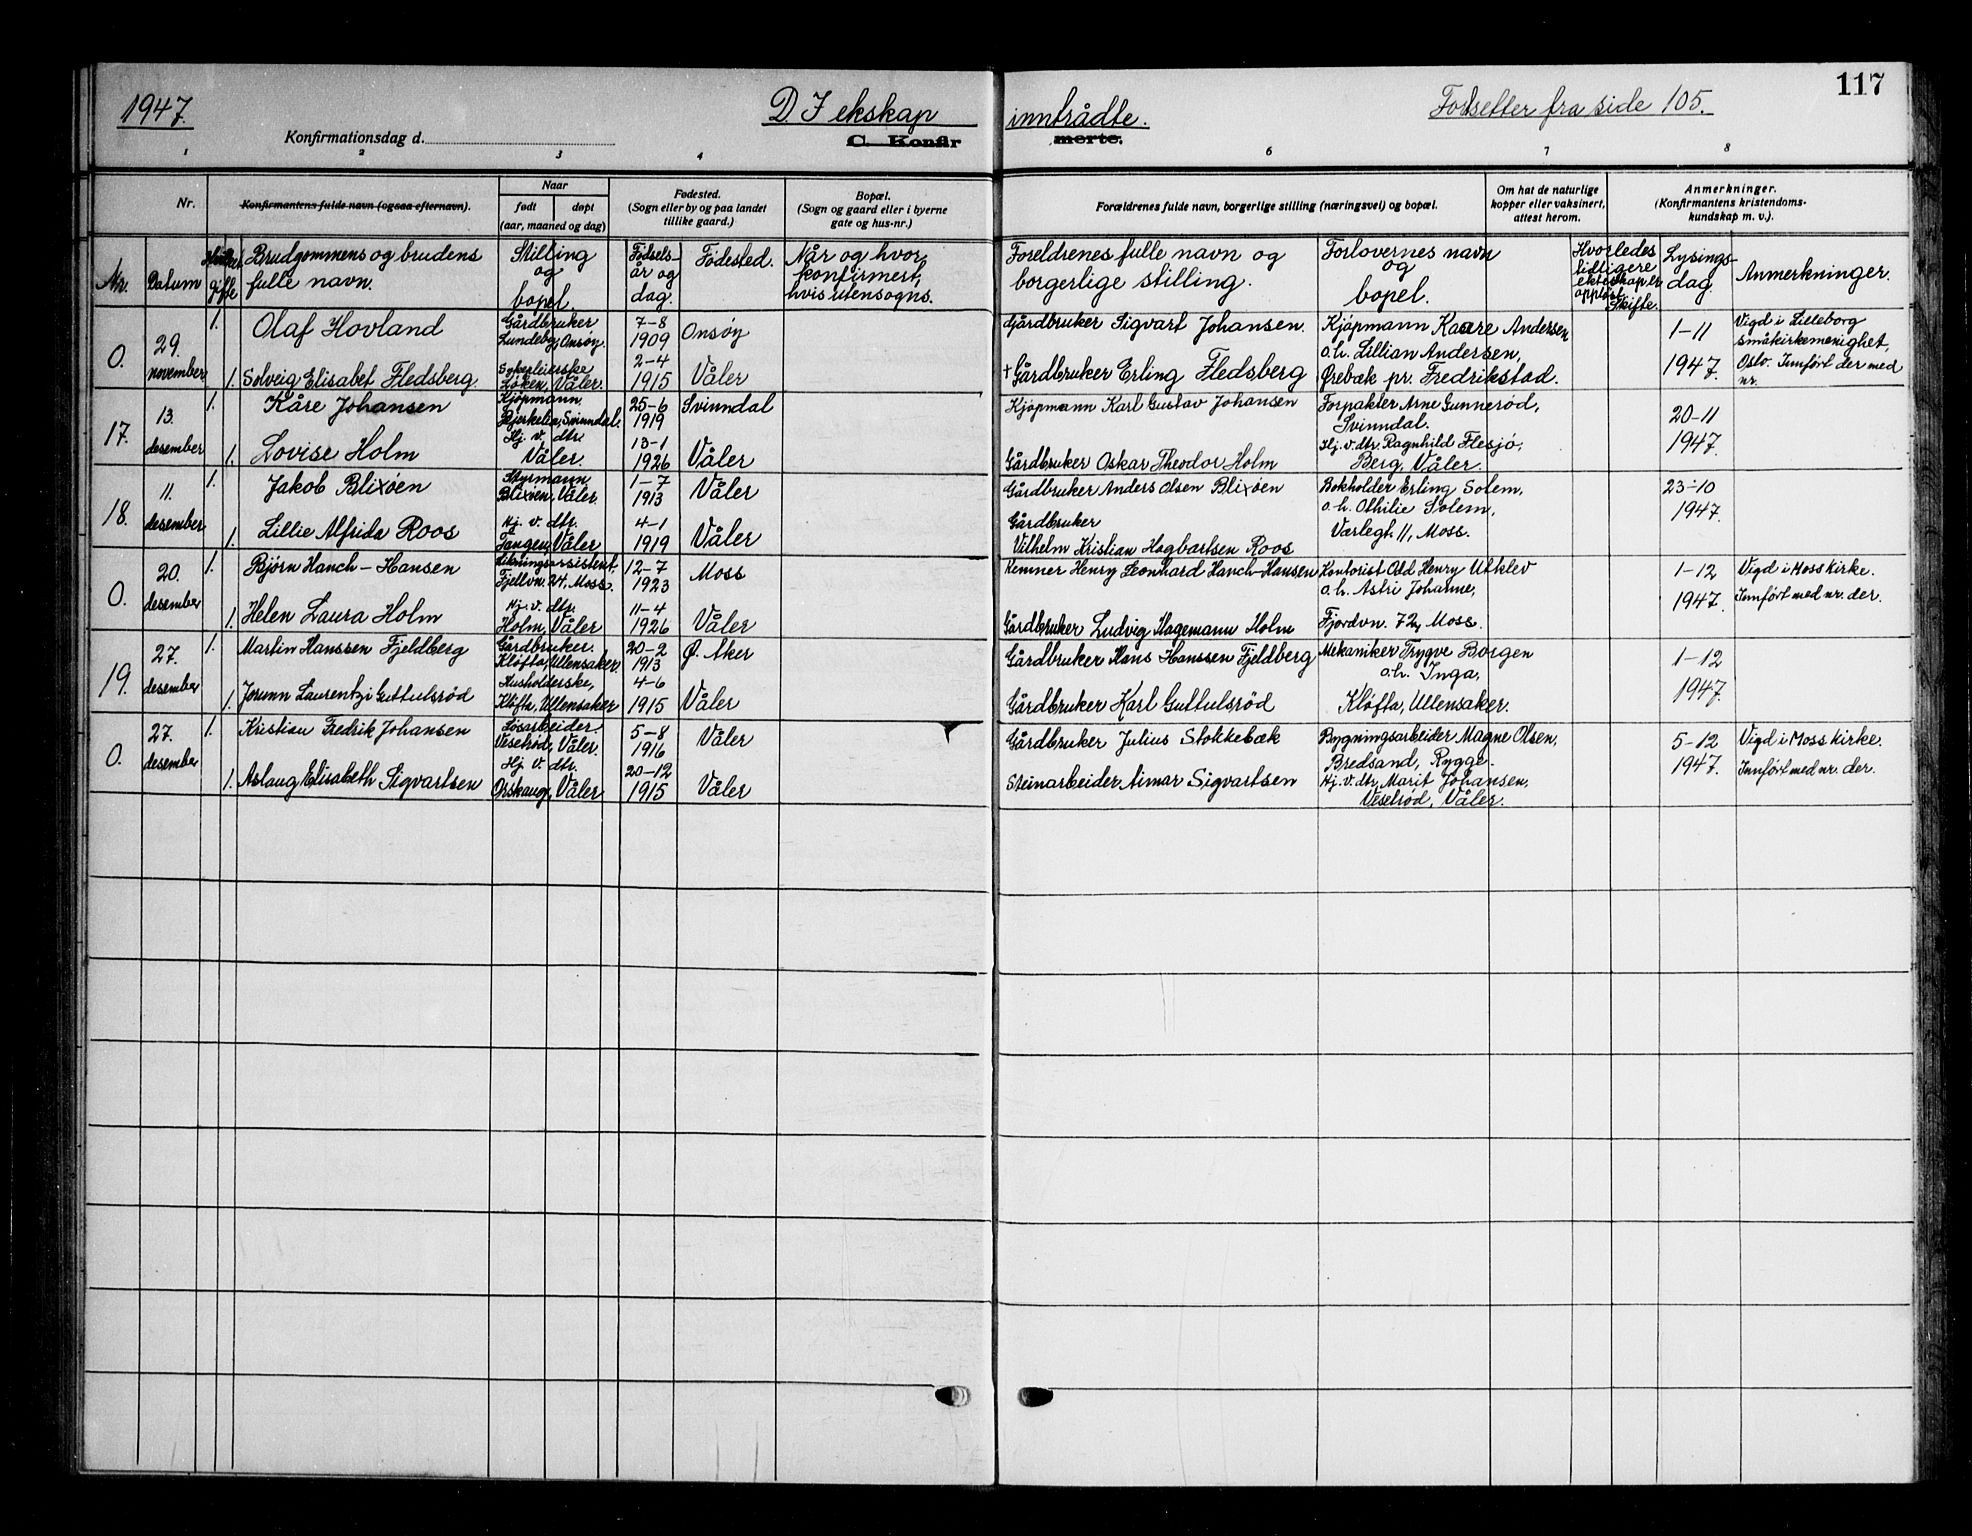 117
1947.
D. I ekskap
inntrådte.
Fortsetter fra side 105.
Konfirmationsdag d.
C. Konfir
merte.
1 2 3 4 6 7 8
Nr.
Konfirmantens fulde navn (ogsaa efternavn).
Naar
født døpt
(aar, maaned og dag)
Fødested.
(Sogn eller by og paa landet
tillike gaard.)
Bopæl.
(Sogn og gaard eller i byerne
gate og hus-nr.)
Forældrenes fulde navn, borgerlige stilling (næringsvei) og bopæl.
Om hat de naturlige
kopper eller vaksinert,
attest herom.
Anmerkninger.
(Konfirmantens kristendoms-
kundskap m. v.).
Nr.
Datum
gifte
Brudgommens og brudens
fulle navn.
Stilling
og
bopel.
Fødsels-
år og
dag.
Fødested.
Når og hvor
konfirmert,
hvis utensogns.
Foreldrenes fulle navn og
borgerlige stilling.
Forlovernes navn
og
bopel.
Hvorledes
tidligere
ekteskap er
oppløst.
Skifte.
Lysings-
dag.
Anmerkninger.
0.
29.
november
1.
Olaf Hovland
Gårdbruker
Lundeby, Onsøy.
7-8
1909
Onsøy
Gårdbruker Sigvart Johansen.
Kjøpmann Kaare Andersen
o.h. Lillian Andersen,
Ørebæk pr. Fredrikstad.
1-11
1947.
Vigd i Lilleborg
småkirkemenighet,
Oslo. Innført der med
nr.
1.
Solveig Elisabet Fledsberg
Sykepleierske
Løken, Våler.
2-4
1915
Våler
† Gårdbruker Erling Fledsberg
17.
13.
desember
1.
Kåre Johansen
Kjøpmann
Bjerkelia, Svinndal.
25-6
1919
Svinndal
Kjøpmann Karl Gustav Johansen
Forpakter Arne Gunnerød,
Svinndal.
Hj. v. dtr. Ragnhild Flesjø,
Berg, Våler.
20-11
1947.
1.
Lovise Holm
Hj. v. dtr.
Våler.
13-1
1926
Våler
Gårdbruker Oskar Theodor Holm
18.
11.
desember
1.
Jakob Blixøen
Styrmann
Blixøen, Våler.
1-7
1913
Våler
Gårdbruker Anders Olsen Blixøen
Bokholder Erling Solem,
o.h. Othilie Solem,
Værlegt. 11, Moss.
23-10
1947.
1.
Lillie Alfrida Roos
Hj. v. dtr.
Tangen, Våler
4-1
1919
Våler
Gårdbruker
Vilhelm Kristian Hagbartsen Roos
0.
20.
desember
1.
Bjørn Hanch-Hansen
Likningsassistent.
Fjellvn. 24. Moss.
12-7
1923
Moss
Kemner Henry Leonhard Hanch-Hansen
Kontorist Odd Henry Utklev
o.h. Astri Johanne,
Fjordvn. 72, Moss.
1-12
1947.
Vigd i Moss kirke.
Innført med nr. der.
1.
Helen Laura Holm
Hj. v. dtr.
Holm, Våler
11-4
1926
Våler
Gårdbruker Ludvig Hagemann Holm
19.
27.
desember
1.
Martin Hanssen Fjeldberg
Gårdbruker.
Kløfta, Ullensaker.
20-2
1913
Ø. Aker
Gårdbruker Hans Hanssen Fjeldberg
Mekaniker Trygve Borgen
o.h. Inga,
Kløfta, Ullensaker.
1-12
1947.
1.
Jorunn Laurentzi Guttulsrød
Husholderske,
Kløfta, Ullensaker
4-6
1915
Våler
Gårdbruker Karl Guttulsrød
0.
27.
desember
1.
Kristian Fredrik Johansen
Løsarbeider.
Veselrød, Våler.
5-8
1916
Våler
Gårdbruker Julius Stokkebæk
Bygningsarbeider Magne Olsen,
Bredsand, Rygge.
Hj. v. dtr. Marit Johansen,
Veselrød, Våler.
5-12
1947.
Vigd i Moss kirke.
Innført med nr. der.
1.
Aslaug Elisabeth Sigvartsen
Hj. v. dtr.
Orskaug, Våler
20-12
1915
Våler
Steinarbeider Aimar Sigvartsen